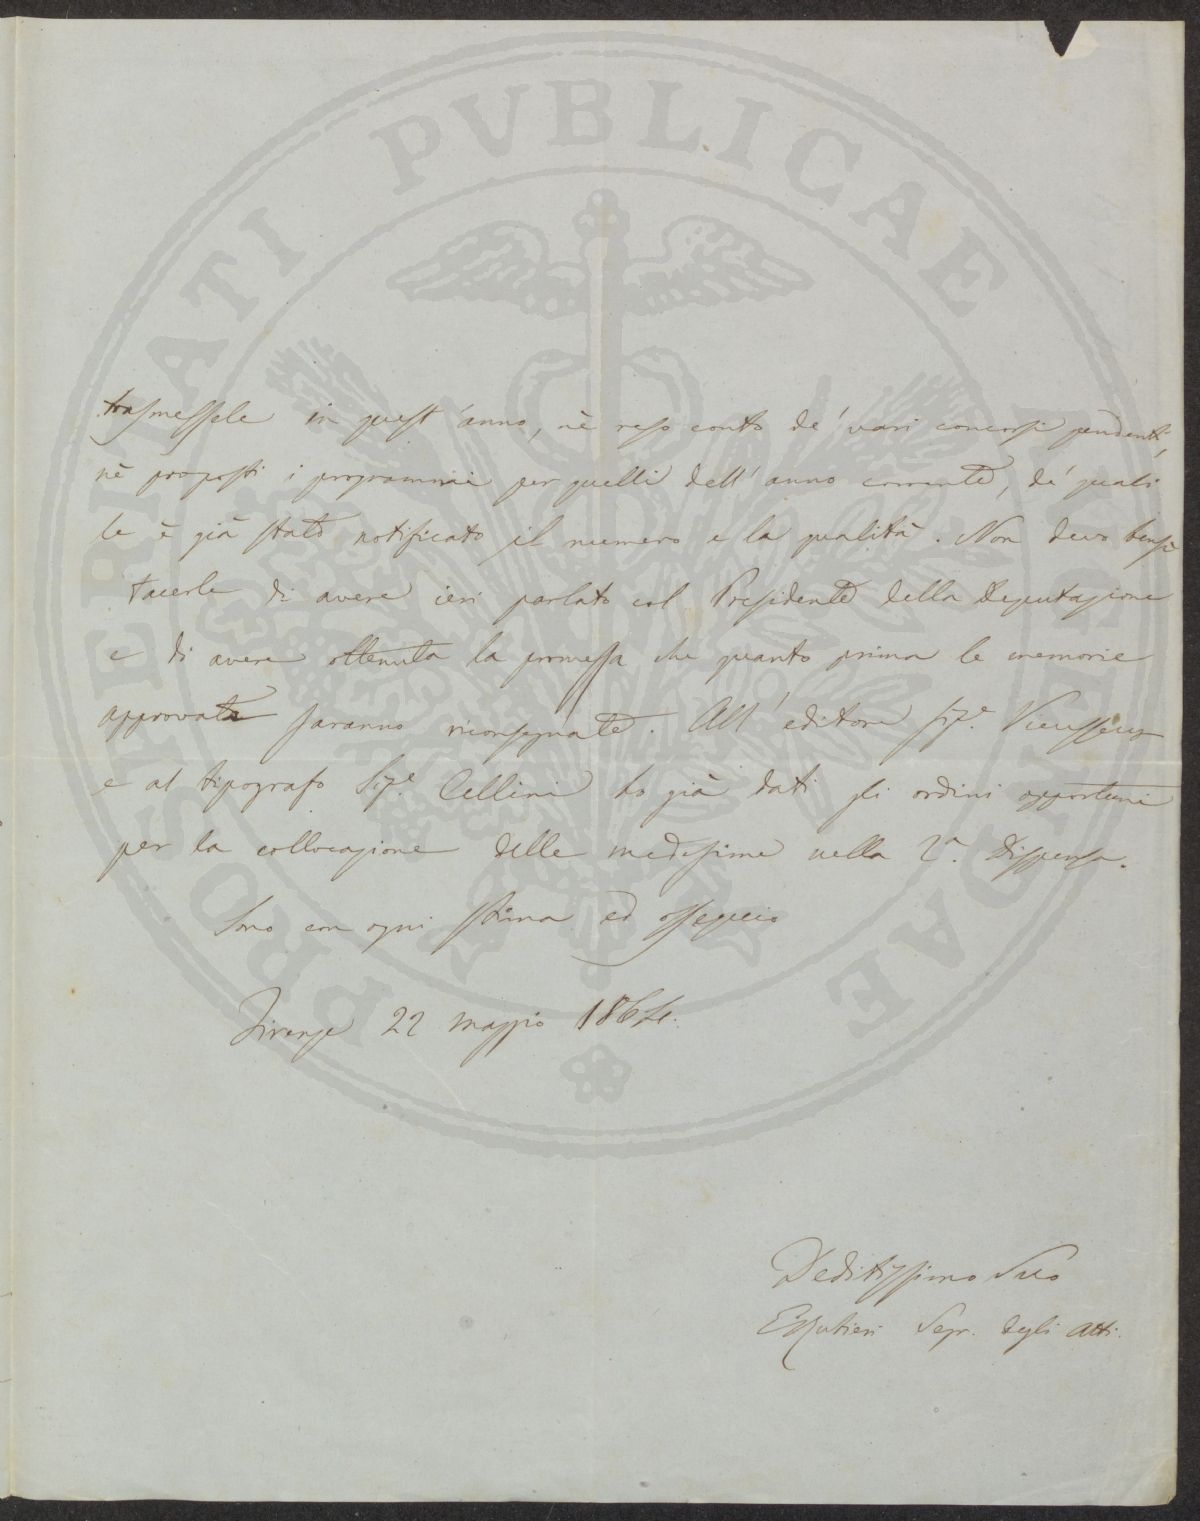 PROSPERITATI PVBLICAE AVGENDAE
trasmessele in quest'anno, nè reso conto de' vari concorsi pendenti,
nè proposti i programmi per quelli dell'anno corrente, de' quali
le è già stato notificato il numero e la qualità. Non devo bensì
tacerle di avere ieri parlato col Presidente della Deputazione
e di avere ottenuta la promessa che quanto prima le memorie
approvate saranno riconsegnate. All'editore Sigre. Vieusseux
e al tipografo Sigre. Cellini ho già dati gli ordini opportuni
per la collocazione delle medesime nella 2a. Dispensa.
Sono con ogni stima ed ossequio
Firenze 22 maggio 1864.
Deditissimo Suo
Segr. degli Atti.